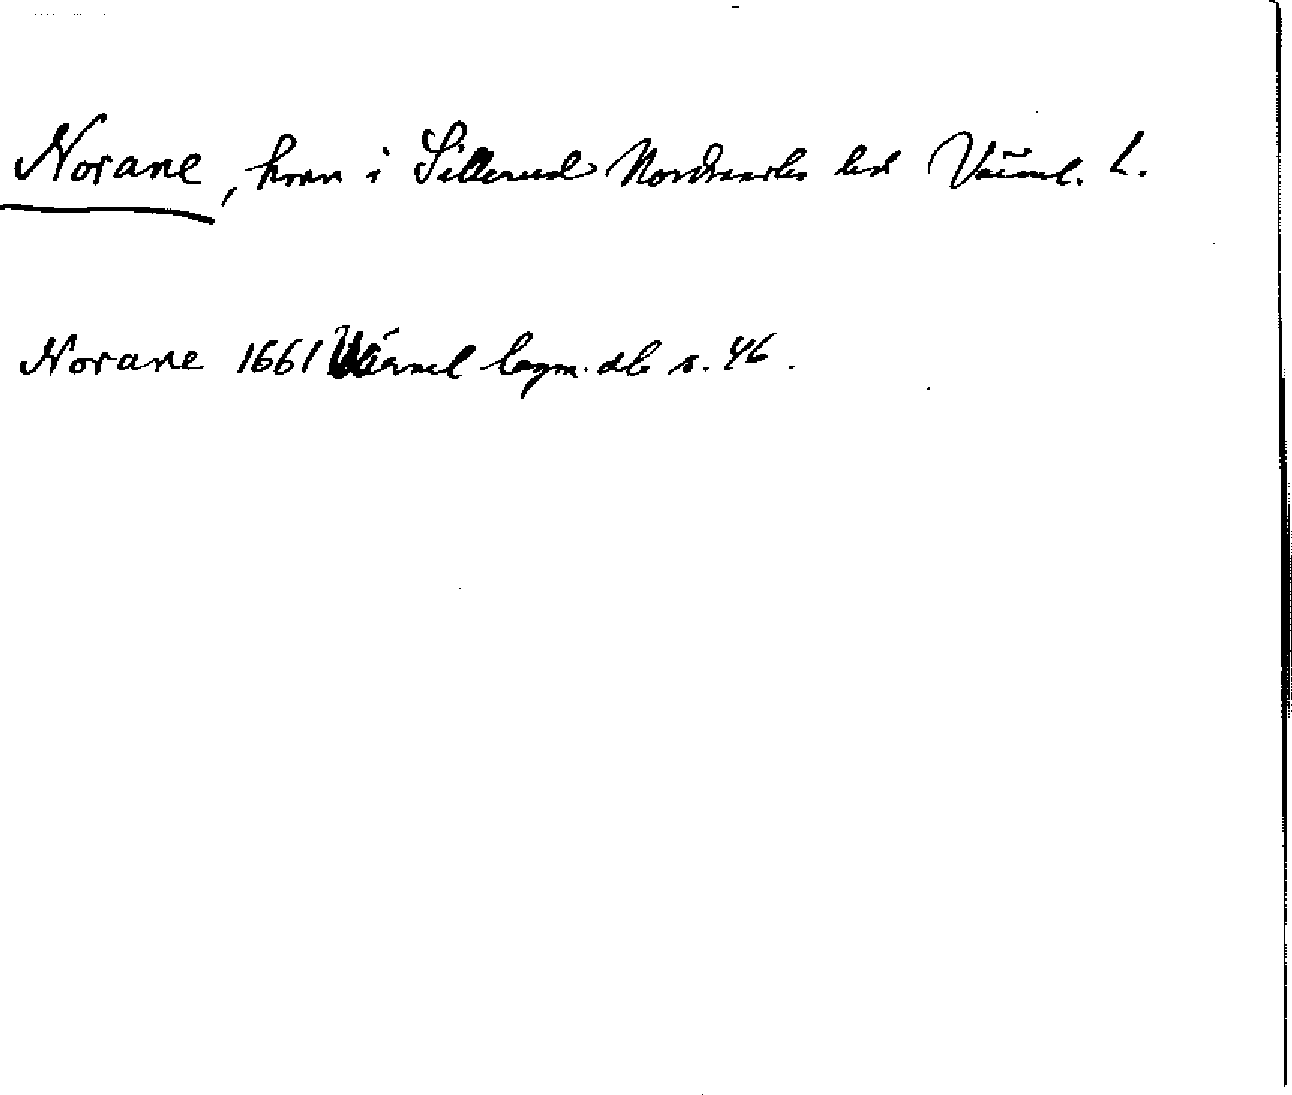 Norane, kvarn i Sillerud Nordmarks hd Värml. L.
Norane 1661 Värml lagm. db s. 46.